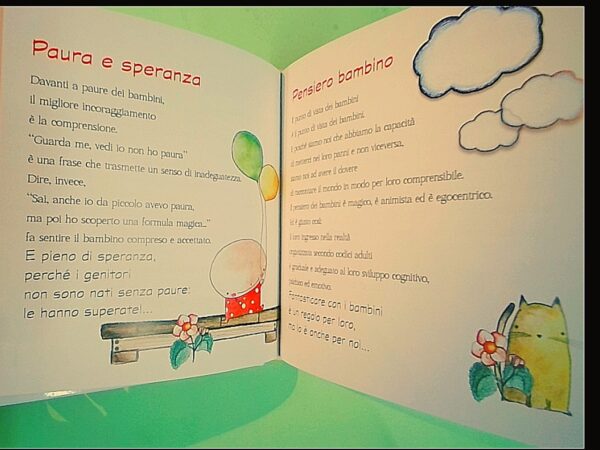 Paura e speranza
Davanti a paure dei bambini,
il migliore incoraggiamento
è la comprensione.
"Guarda me, vedi io non ho paura"
è una frase che trasmette un senso di inadeguatezza.
Dire, invece,
"Sai, anche io da piccolo avevo paura,
ma poi ho scoperto una formula magica..."
fa sentire il bambino compreso e accettato.
E pieno di speranza,
perché i genitori
non sono nati senza paure:
le hanno superate!...
Pensiero bambino
Il punto di vista dei bambini
è il punto di vista dei bambini.
E poiché siamo noi che abbiamo la capacità
di metterci nei loro panni e non viceversa,
siamo noi ad avere il dovere
di mostrare il mondo in modo per loro comprensibile.
Il pensiero dei bambini è magico, è animista ed è egocentrico.
Ed è giusto così:
il loro ingresso nella realtà
organizzata secondo codici adulti
è graduale e adeguato al loro sviluppo cognitivo,
ed emotivo.
Fantasticare con i bambini
è un regalo per loro,
ma lo è anche per noi...